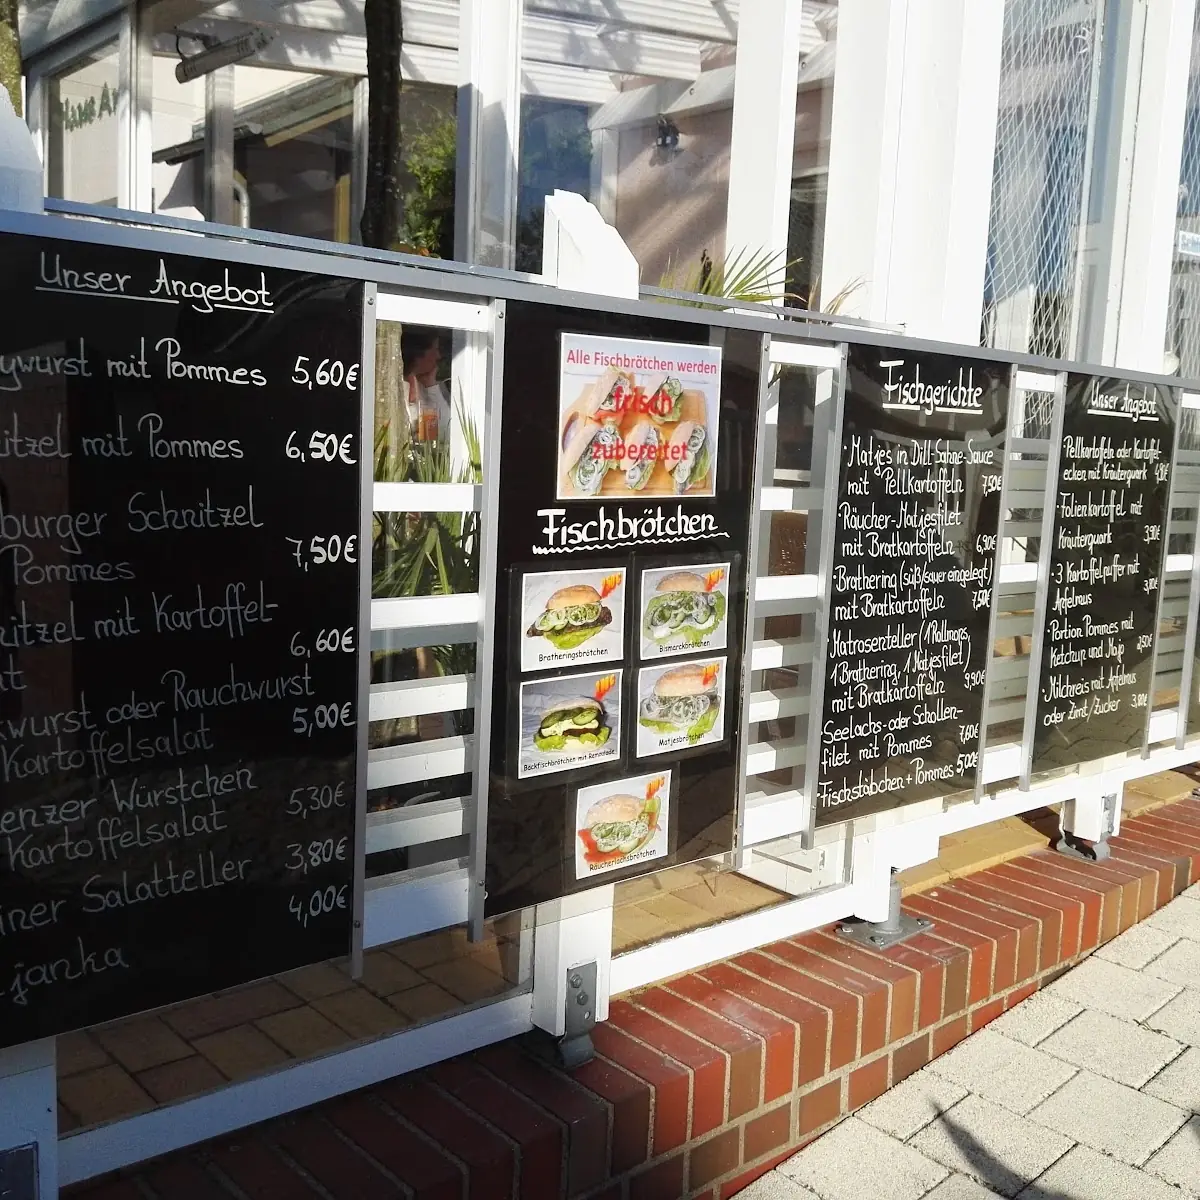 Unser Angebot
ywurst mit Pommes 5,60€
itzel mit Pommes 6,50€
burger Schnitzel
Pommes 7,50€
nitzel mit Kartoffel-
at 6,60€
kwurst oder Rauchwurst
Kartoffelsalat 5,00€
enzer Würstchen
Kartoffelsalat 5,30€
iner Salatteller 3,80€
janka 4,00€
Alle Fischbrötchen werden
frisch
zubereitet
Fischbrötchen
Bratheringsbrötchen
Bismarckbrötchen
Backfischbrötchen mit Remoulade
Matjesbrötchen
Räucherlachsbrötchen
Fischgerichte
· Matjes in Dill-Sahne-Sauce
mit Pellkartoffeln 7,50€
· Räucher-Matjesfilet
mit Bratkartoffeln 6,90€
· Brathering (süß/sauer eingelegt)
mit Bratkartoffeln 7,50€
Matrosenteller (1 Rollmops,
1 Brathering, 1 Matjesfilet)
mit Bratkartoffeln 9,90€
· Seelachs- oder Schollen-
filet mit Pommes 7,60€
· Fischstäbchen + Pommes 5,00€
Unser Angebot
· Pellkartoffeln oder Kartoffel-
ecken mit Kräuterquark
· Folienkartoffel mit
Kräuterquark 3,90€
· 3 Kartoffelpuffer mit
Apfelmus
· Portion Pommes mit
Ketchup und Majo
· Milchreis mit Apfelmus
oder Zimt/Zucker